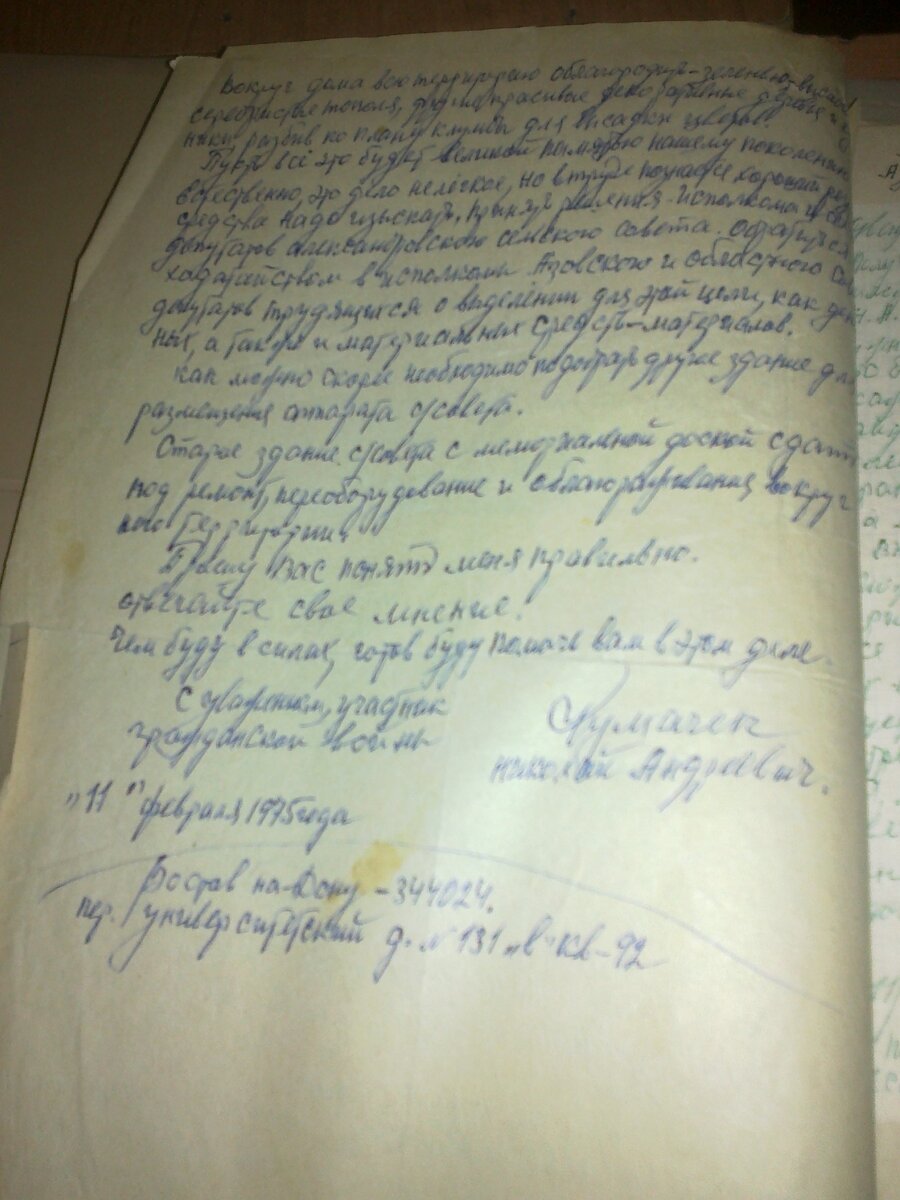 Вокруг дома всю территорию облагородить зеленью-высад
серебристые тополя, другие красивые декоративные деревья и
ники, разбив по плану клумбы для высадки цветов.
Пусть всё это будет великой памятью нашему поколению
естественно, это дело нелёгкое, но в труде познаётся хороший
средства надо изыскать, приняв решения исполкома и
депутатов Александровского сельского совета. обратиться
хадатайством в исполкомы Азовского и областного Со
депутатов трудящихся о выделении для этой цели, как ден
ных, а также и материальных средств-материалов.
как можно скорее необходимо подобрать другое здание для
размещения аппарата с/совета.
Старое здание с/совета с мемориальной доской сдать
под ремонт, переоборудование и облагораживание вокруг
него территории.
Прошу Вас понять меня правильно.
отвечайте свое мнение.
Чем буду в силах, готов буду помочь вам в этом деле.
С уважением, участник
гражданской войны
Николай Андреевич.
"11" февраля 1975 года
Ростов на-Дону - 344024.
пер. Университетский д. № 131 "в" кв-92